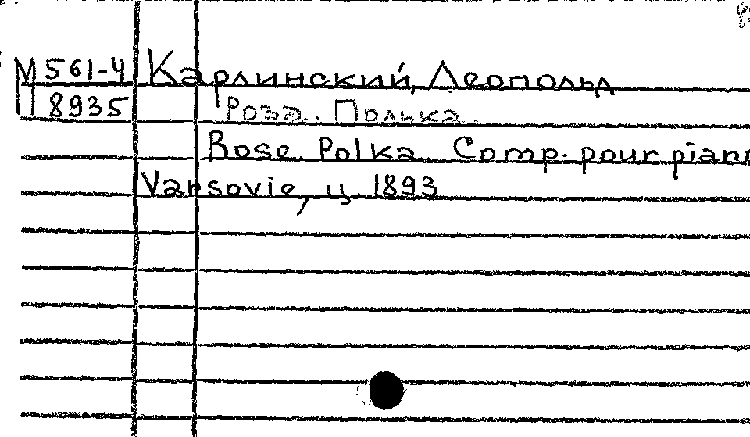 М 561-4 Карлинский, Леопольд
8935 Роза. Полька.
Rose. Polka. Comp. pour piano
Varsovie, ц. 1893